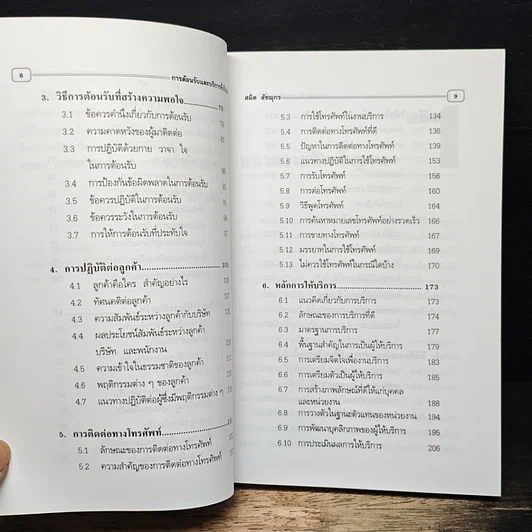 8
การต้อนรับและบริการที่
3. วิธีการต้อนรับที่สร้างความพอใจ
3.1 ข้อควรคำนึงเกี่ยวกับการต้อนรับ
3.2 ความคาดหวังของผู้มาติดต่อ
3.3 การปฏิบัติด้วยกาย วาจา ใจ
ในการต้อนรับ
3.4 การป้องกันข้อผิดพลาดในการต้อนรับ
3.5 ข้อควรปฏิบัติในการต้อนรับ
3.6 ข้อควรระวังในการต้อนรับ
3.7 การให้การต้อนรับที่ประทับใจ
4. การปฏิบัติต่อลูกค้า
4.1 ลูกค้าคือใคร สำคัญอย่างไร
4.2 ทัศนคติต่อลูกค้า
4.3 ความสัมพันธ์ระหว่างลูกค้ากับบริษัท
4.4 ผลประโยชน์สัมพันธ์ระหว่างลูกค้า
บริษัท และพนักงาน
4.5 ความเข้าใจในธรรมชาติของลูกค้า
4.6 พฤติกรรมต่าง ๆ ของลูกค้า
4.7 แนวทางปฏิบัติต่อผู้ซึ่งมีพฤติกรรมต่าง ๆ
5. การติดต่อทางโทรศัพท์
5.1 ลักษณะของการติดต่อทางโทรศัพท์
5.2 ความสำคัญของการติดต่อทางโทรศัพท์
สมิต สัชฌุกร 9
5.3 การใช้โทรศัพท์ในงานบริการ 134
5.4 การติดต่อทางโทรศัพท์ที่ดี 136
5.5 ปัญหาในการติดต่อทางโทรศัพท์ 139
5.6 แนวทางปฏิบัติในการใช้โทรศัพท์ 153
5.7 การรับโทรศัพท์ 156
5.8 การต่อโทรศัพท์ 160
5.9 วิธีพูดโทรศัพท์ 163
5.10 การค้นหาหมายเลขโทรศัพท์อย่างรวดเร็ว 166
5.11 การขายทางโทรศัพท์ 167
5.12 มารยาทในการใช้โทรศัพท์ 168
5.13 ไม่ควรใช้โทรศัพท์ในกรณีใดบ้าง 170
6. หลักการให้บริการ 173
6.1 แนวคิดเกี่ยวกับการบริการ 173
6.2 ลักษณะของการบริการที่ดี 175
6.3 มาตรฐานการบริการ 177
6.4 พื้นฐานสำคัญในการเป็นผู้ให้บริการ 179
6.5 การเตรียมจิตใจเพื่องานบริการ 183
6.6 การเตรียมตัวเป็นผู้ให้บริการ 185
6.7 การสร้างภาพลักษณ์ที่ดีให้แก่บุคคล
และหน่วยงาน 188
6.8 การวางตัวในฐานะตัวแทนของหน่วยงาน 194
6.9 การพัฒนาบุคลิกภาพของผู้ให้บริการ 195
6.10 การประเมินผลการให้บริการ 206